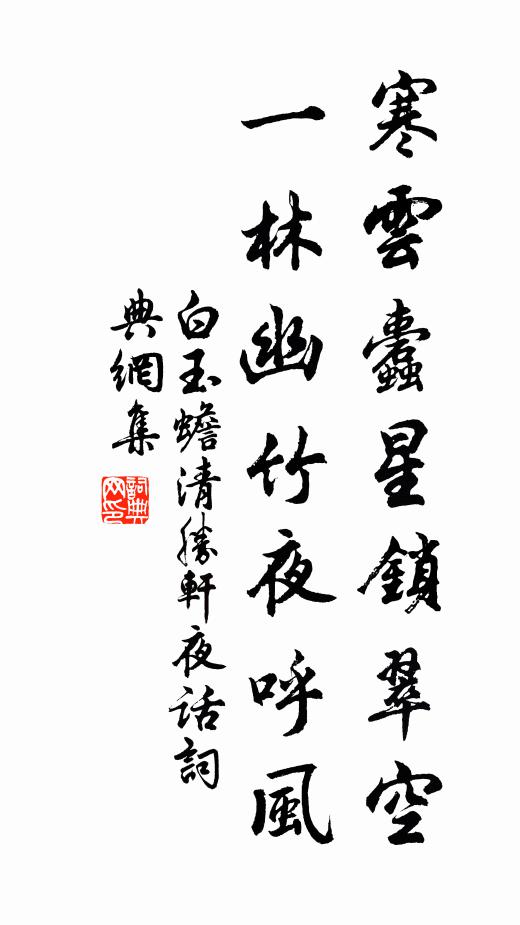 寒雲蠹星鎖翠空
一林幽竹夜呼風
白玉蟾清勝軒夜話詞
典網集
詞典网印